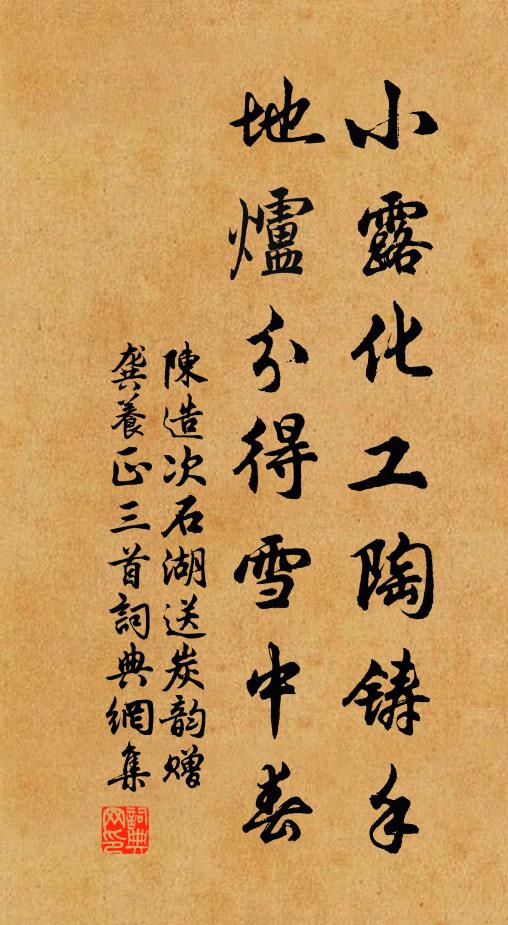 小露化工陶鋳手
地爐分得雪中春
陳造次石湖送炭韵赠
龔養正三首詞典網集
詞典
网印